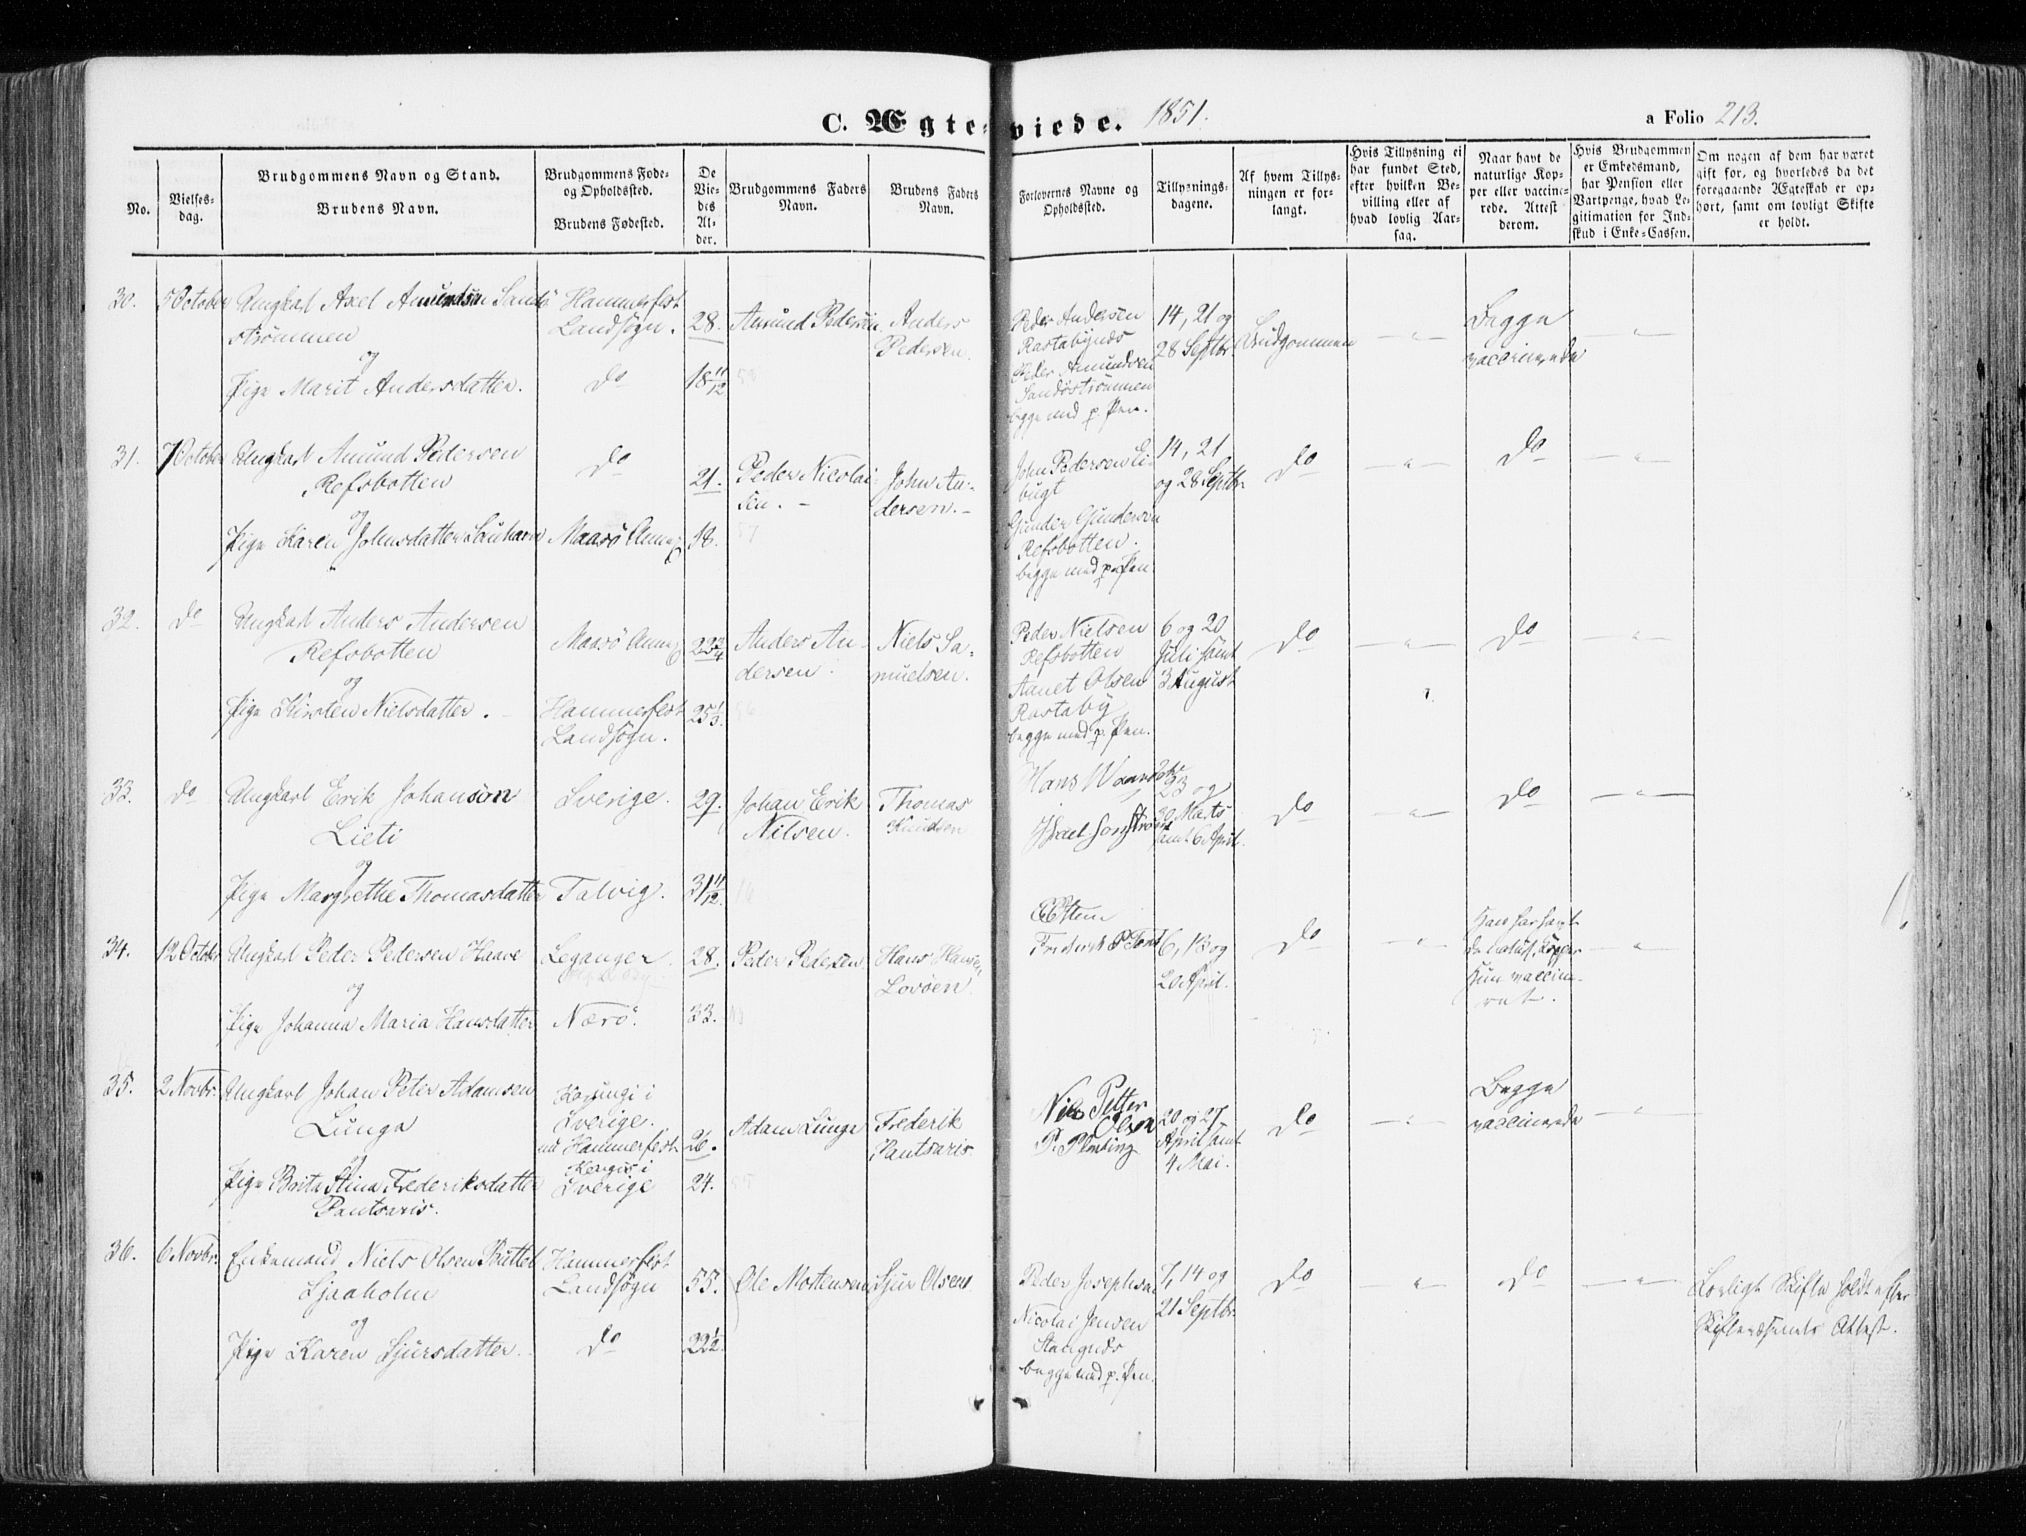 C. Ægte-viede. 1851. a Folio 213.
No.
Vielses-
dag.
Brudgommens Navn og Stand.
Brudens Navn.
Brudgommens Føde-
og Opholdssted.
Brudens Fødested.
De
Vie-
des
Al-
der.
Brudgommens Faders
Navn.
Brudens Faders
Navn.
Forlovernes Navne og
Opholdssted.
Tillysnings-
dagene.
Af hvem Tillys-
ningen er for-
langt.
Hvis Tillysning ei
har fundet Sted,
efter hvilken Be-
villing eller af
hvad lovlig Aar-
sag.
Naar havt de
naturlige Kop-
per eller vaccine-
rede. Attest
derom.
Hvis Brudgommen
er Embedsmand,
har Pension eller
Vartpenge, hvad Le-
gitimation for Ind-
skud i Enke-Cassen.
Om nogen af dem har været
gift før, og hvorledes da det
foregaaende Ægteskab er op-
hørt, samt om lovligt Skifte
er holdt.
30. 5 October Ungkarl Axel Amundsen Sandø
strømmen
og
Pige Marit Andersdatter.
Hammerfest
Landsogn.
do
28.
18 11/12
Amund Pedersen
Anders
Pedersen.
Peder Andersen
Rastabynds
Peder Amundsen
Sandøstrømmen
begge med p. Pen.
14, 21 og
28 Septbr.
Brudgommen
Begge
vaccinerede
31. 7 October Ungkarl Amund Pedersen
Refsbotten
og
Pige Karen Johnsdatter
do
Maasø Annex
21.
18.
Peder Nicolai
sen.
John An-
dersen.
John Pedersen
bugt
Gunder Gundersen
Refsbotten.
begge med p. Pen.
14, 21
og 28 Septbr.
do
do
32. do Ungkarl Anders Andersen
Refsbotten
og
Pige Kirsten Nielsdatter.
Maasø Annex
Hammerfest
Landsogn.
22 3/4
25 1/3
Anders An-
dersen.
Niels Sa-
muelsen.
Peder Nielsen
Refsbotten
Olsen
Rastaby
begge med p. Pen.
6 og 20
Juli samt
3 August
do
do
33. do Ungkarl Erik Johanson
Lieti
og
Pige Margrethe Thomasdatter
Sverige.
Talvig.
29.
31 11/12
Johan Erik
Nilsen.
Thomas
Knudsen
Hans
23 og
30 Marts
samt 6 April.
do
do
34. 12 October Ungkarl Peder Pedersen Haave
og
Pige Johanna Maria Hansdatter
Leganger
Nærø.
28.
33.
Peder Pedersen
Hans Hansen
Lovøen.
6, 13 og
20 April.
do
Han har havt
de naturl. Kopper
Hun vaccine-
ret.
35. 2 Novbr. Ungkarl Johan Peter Adamsen
Lunga
og
Pige Brita Stina Frederiksdatter
Pantsaris.
Karungi i
Sverige.
nu Hammerfest
Kengis i
Sverige
26.
24.
Adam Lunga
Frederik
Pantsaris
Nils Petter
Olsen
20 og 27
April samt
4 Mai.
do
Begge
vaccinerede
36. 6 Novbr. Enkemand Niels Olsen Buttel
Sjaaholm
og
Pige Karen Sjursdatter.
Hammerfest
Landsogn
do
55.
32 1/2
Ole Mortensen
Sjur Olsen
Peder Josephsen
Nicolai Jensen
begge med p. Pen.
7, 14 og
21 Septbr.
do
do
Lovligt Skifte holdt efter
Skifterettens Attest.